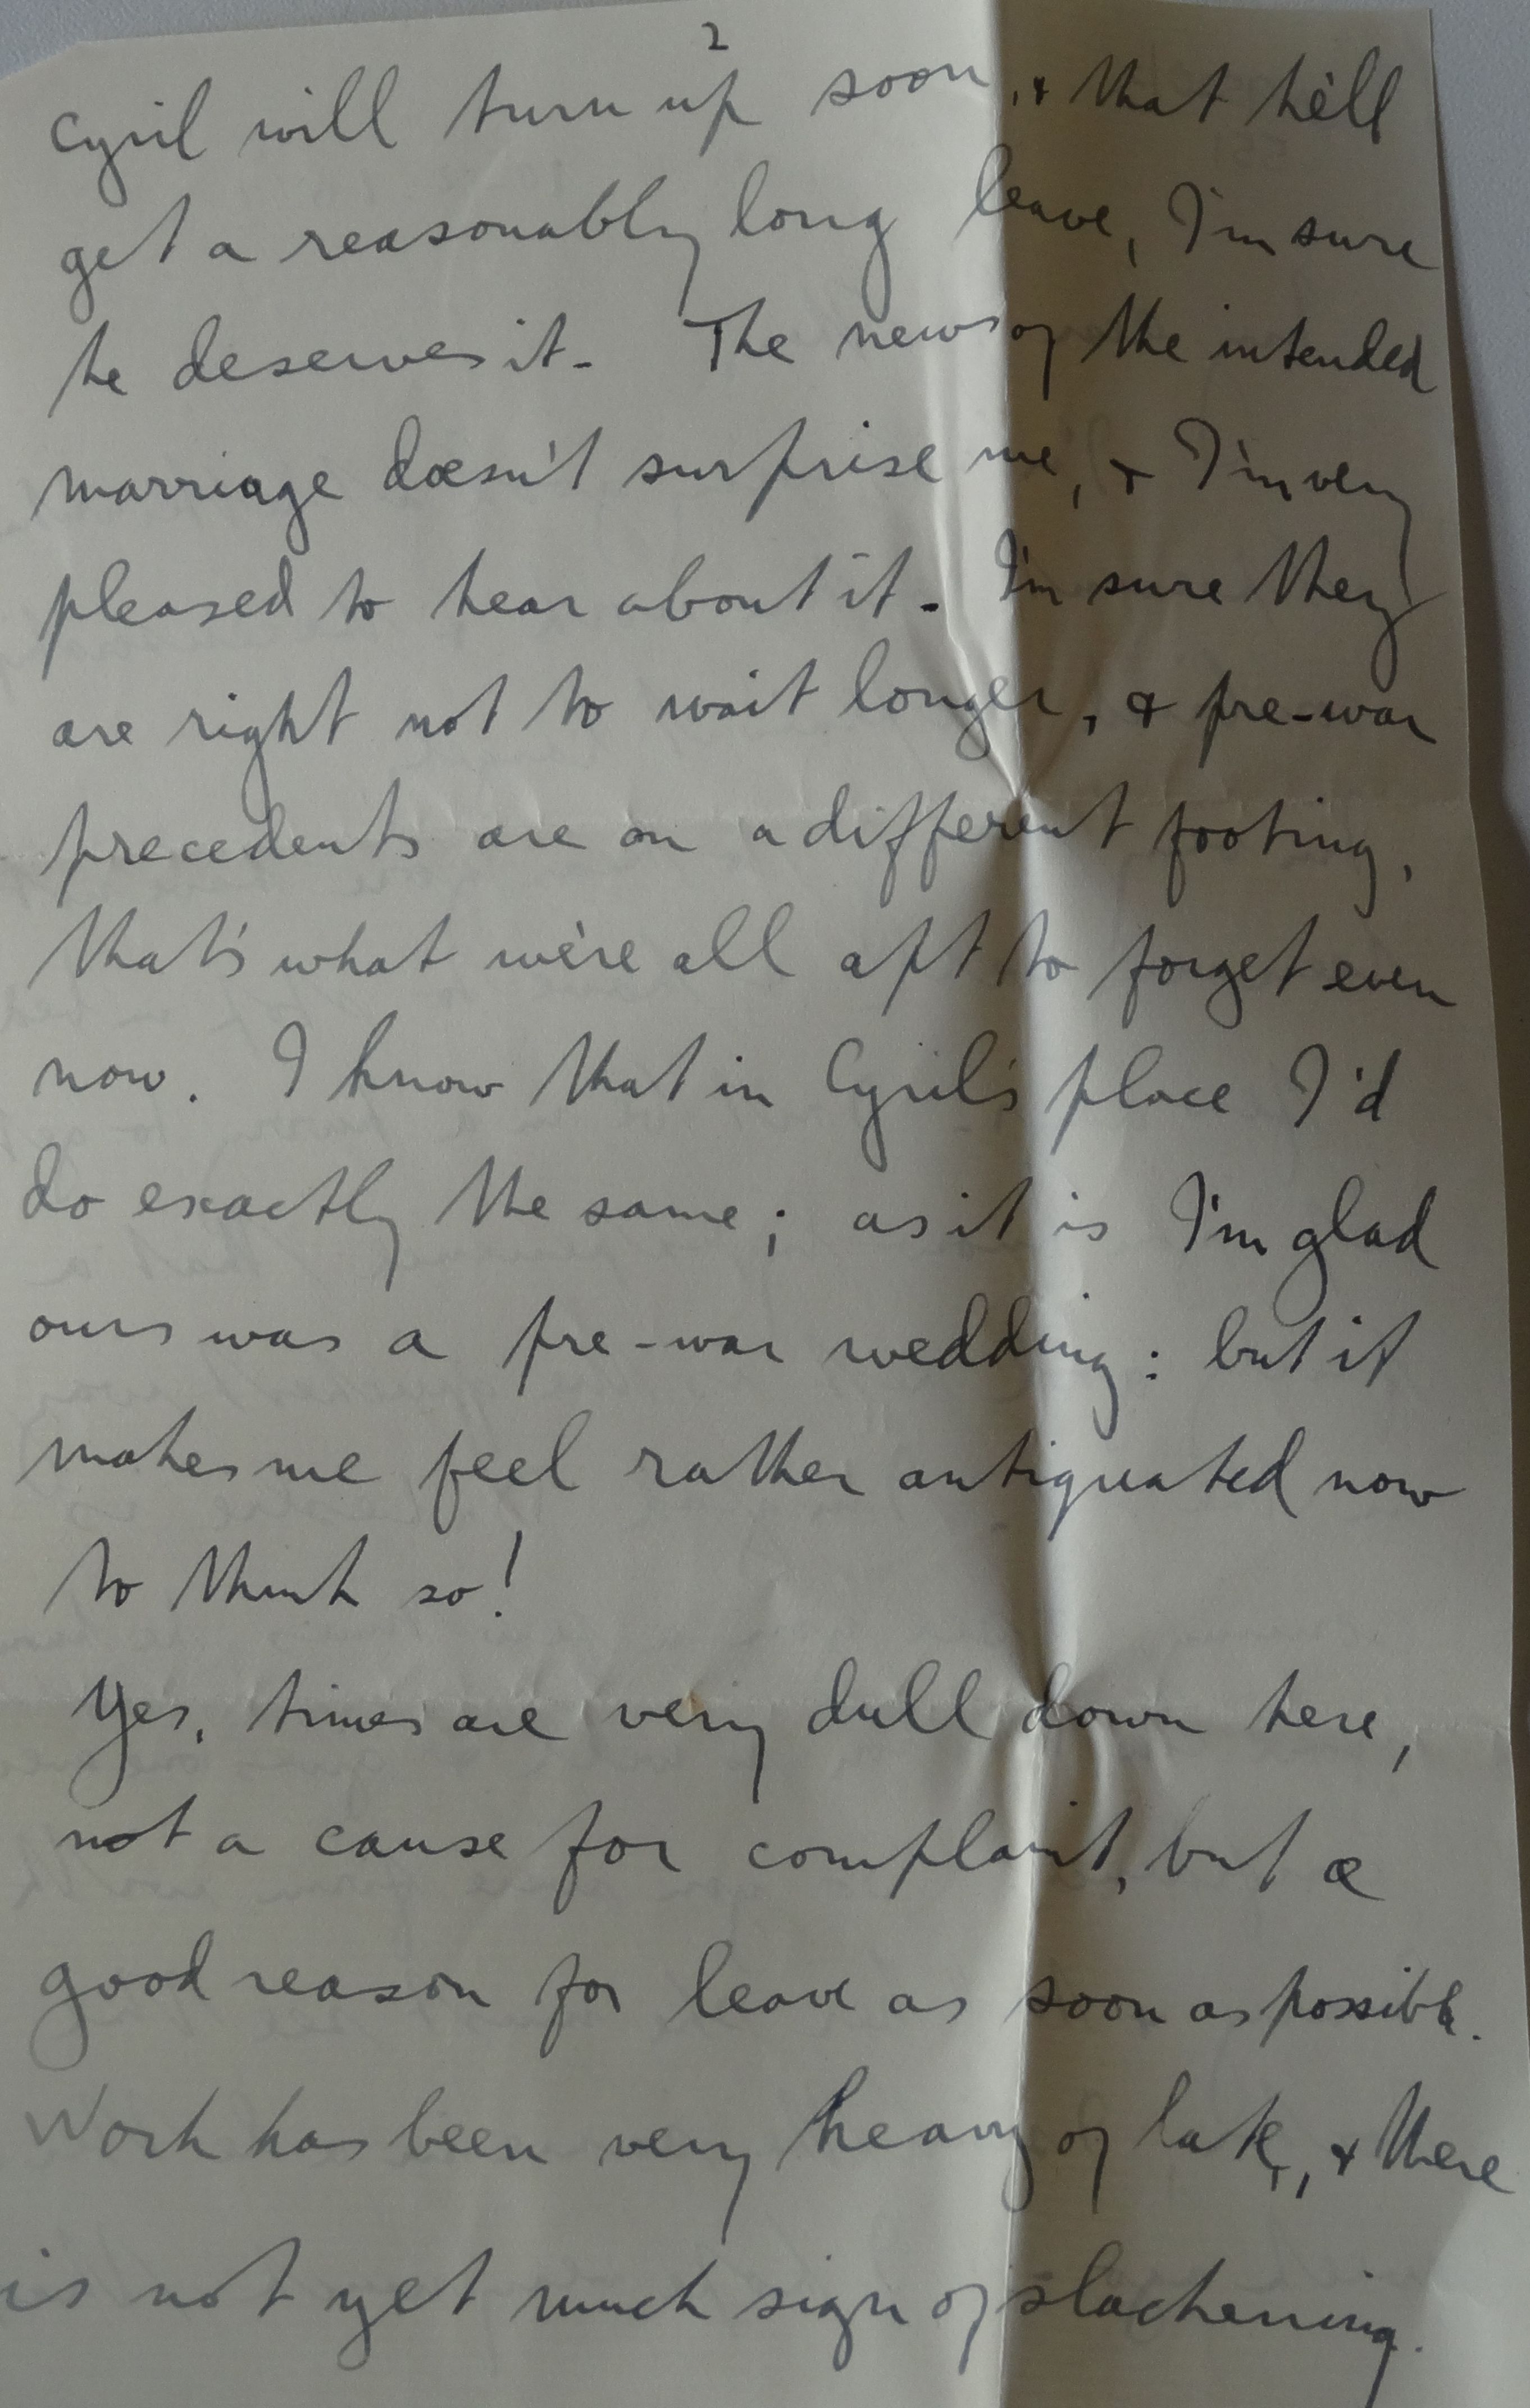 2
Cyril will turn up soon, & that he'll
get a reasonably long leave, I'm sure
he deserves it. The news of the intended
marriage doesn't surprise me, & I'm very
pleased to hear about it. I'm sure they
are right not to wait longer, & pre-war
precedents are on a different footing,
that's what we're all apt to forget even
now. I know that in Cyril's place I'd
do exactly the same; as it is I'm glad
ours was a pre-war wedding: but it
makes me feel rather antiquated now
to think so!
Yes, times are very dull down here,
not a cause for complaint, but a
good reason for leave as soon as possible.
Work has been very heavy of late, & there
is not yet much sign of slackening.